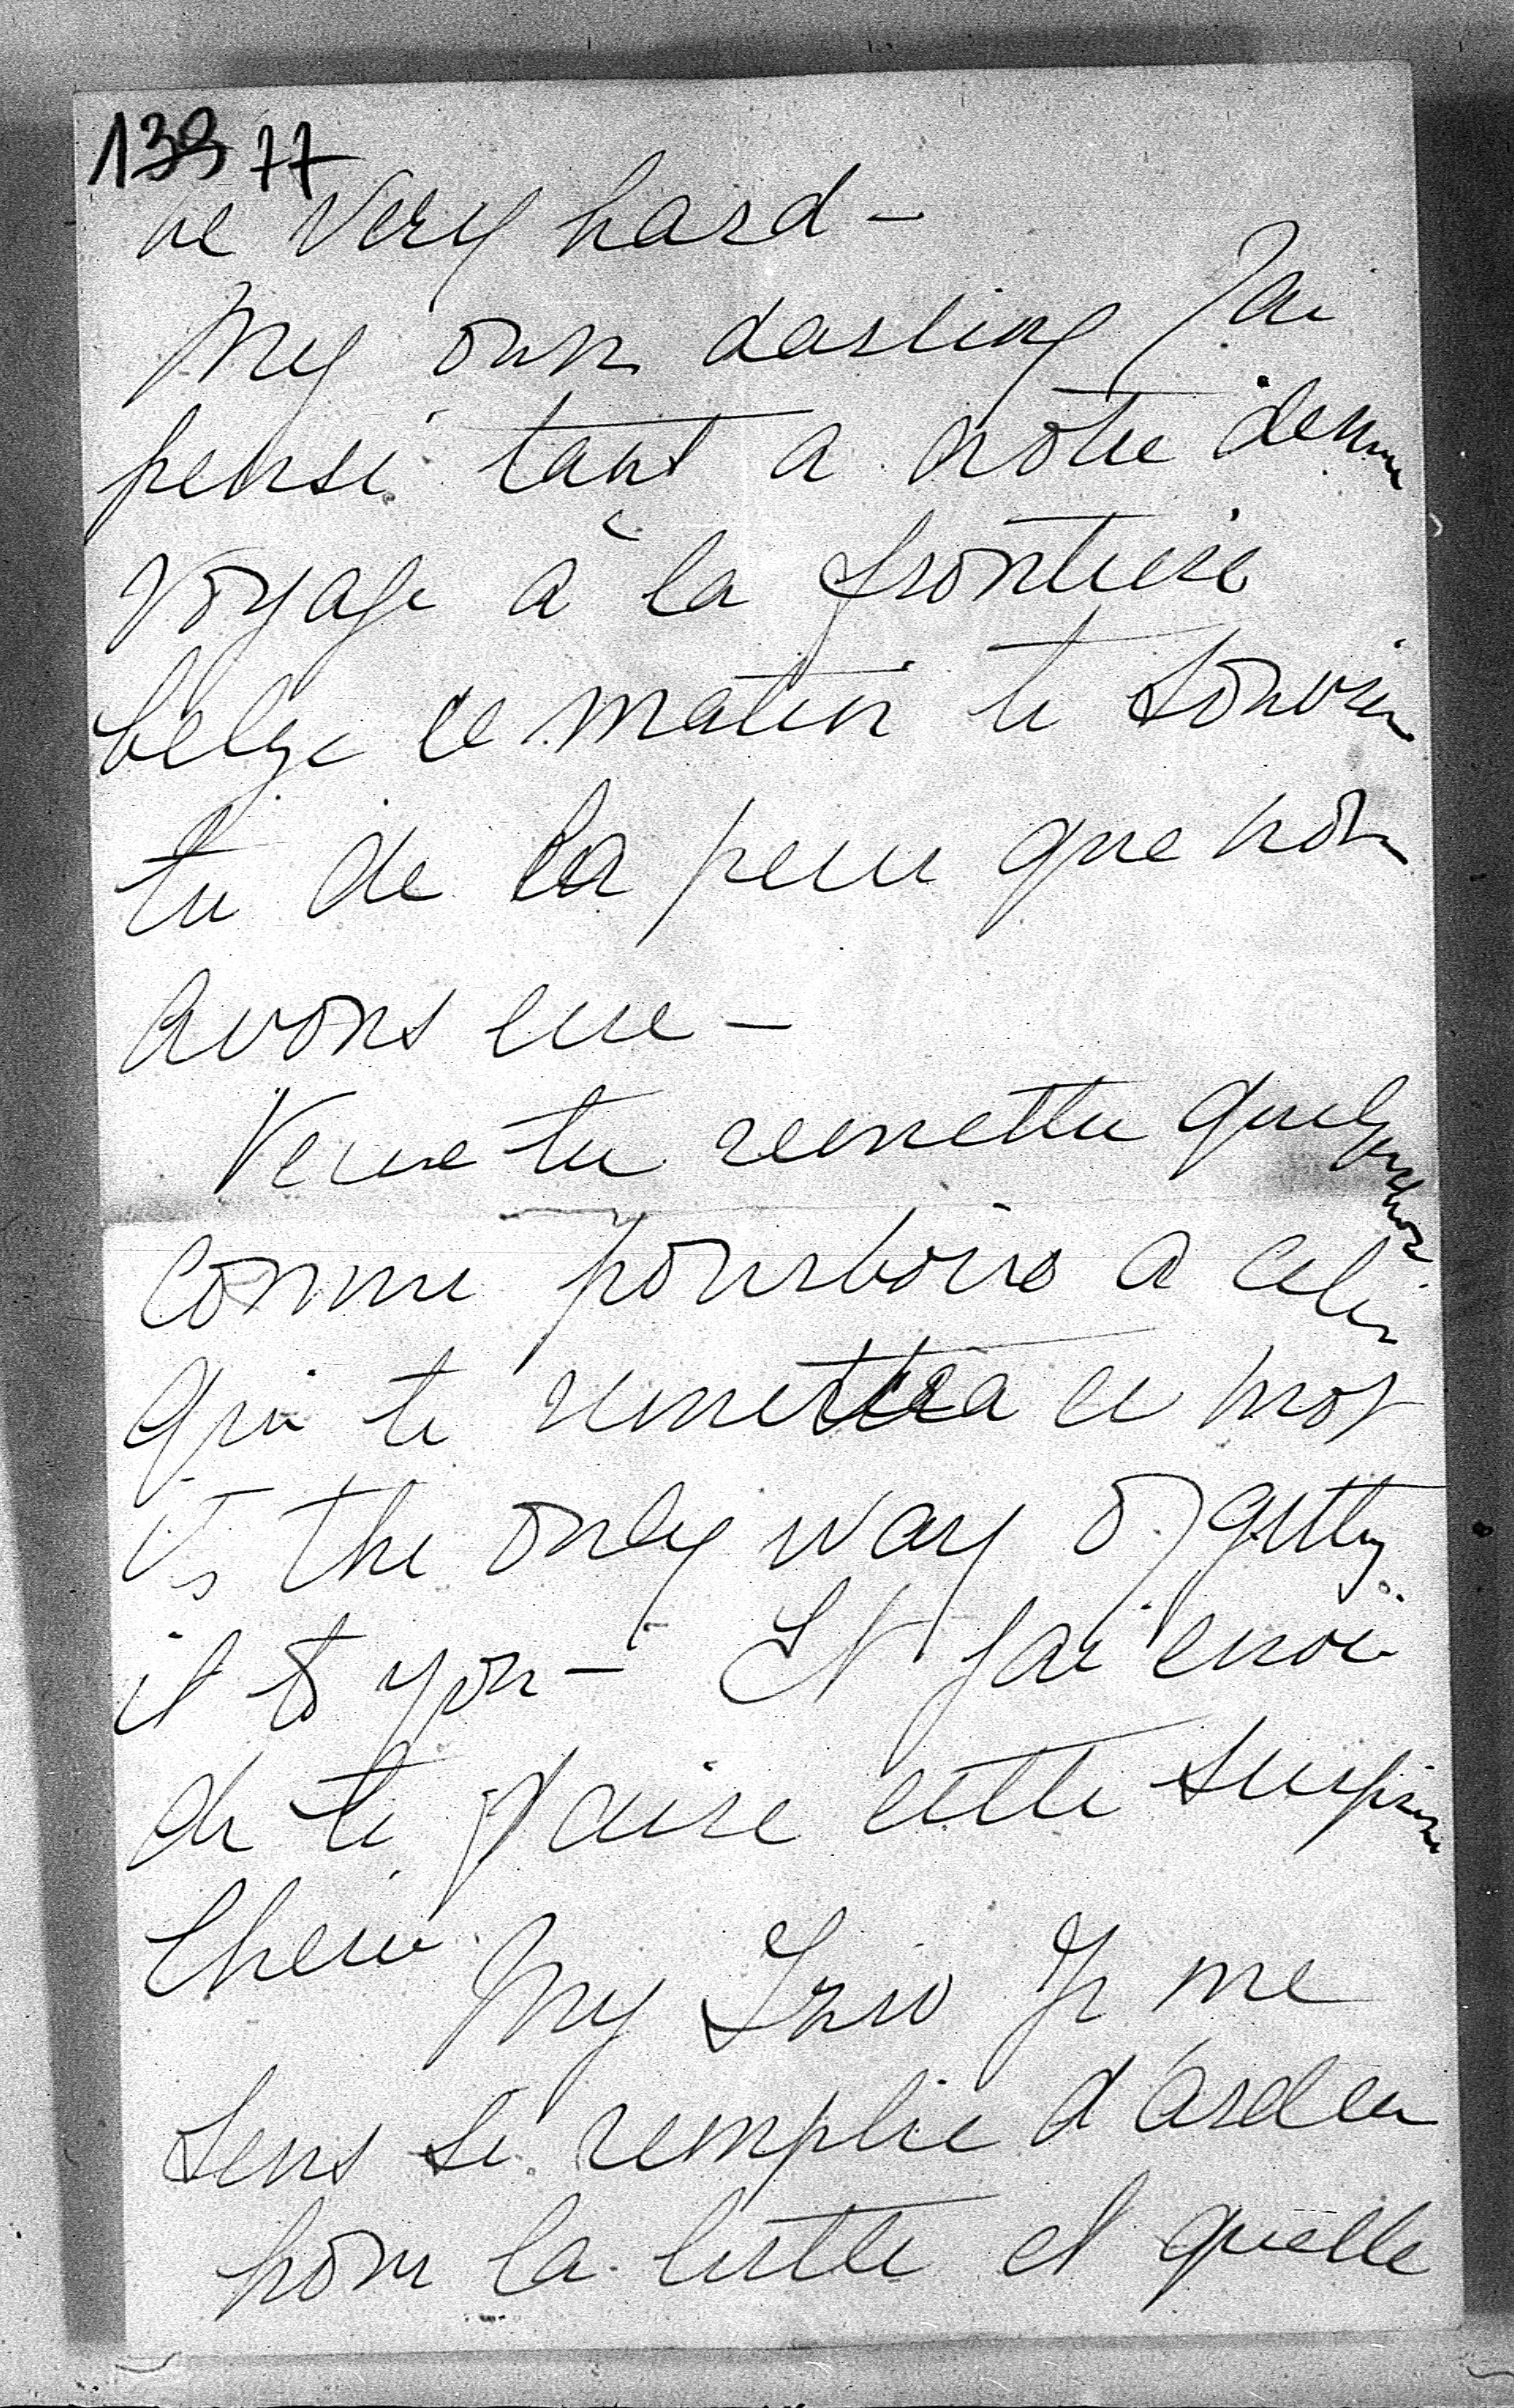 139 77
be very hard –
My own darling J'ai
pensé tant a notre dernier
voyage à la frontiere
belge ce matin te souvien
tu de la peur que nous
avons eue –
Veux tu remettre quelque chose
comme pourboire a celui
qui te remettra ce mot
its the only way of getting
it to you – Et j'ai envie
de te faire cette surprise
Cheri My Je me
sens si remplie d'ardeur
pour la lutte et quelle